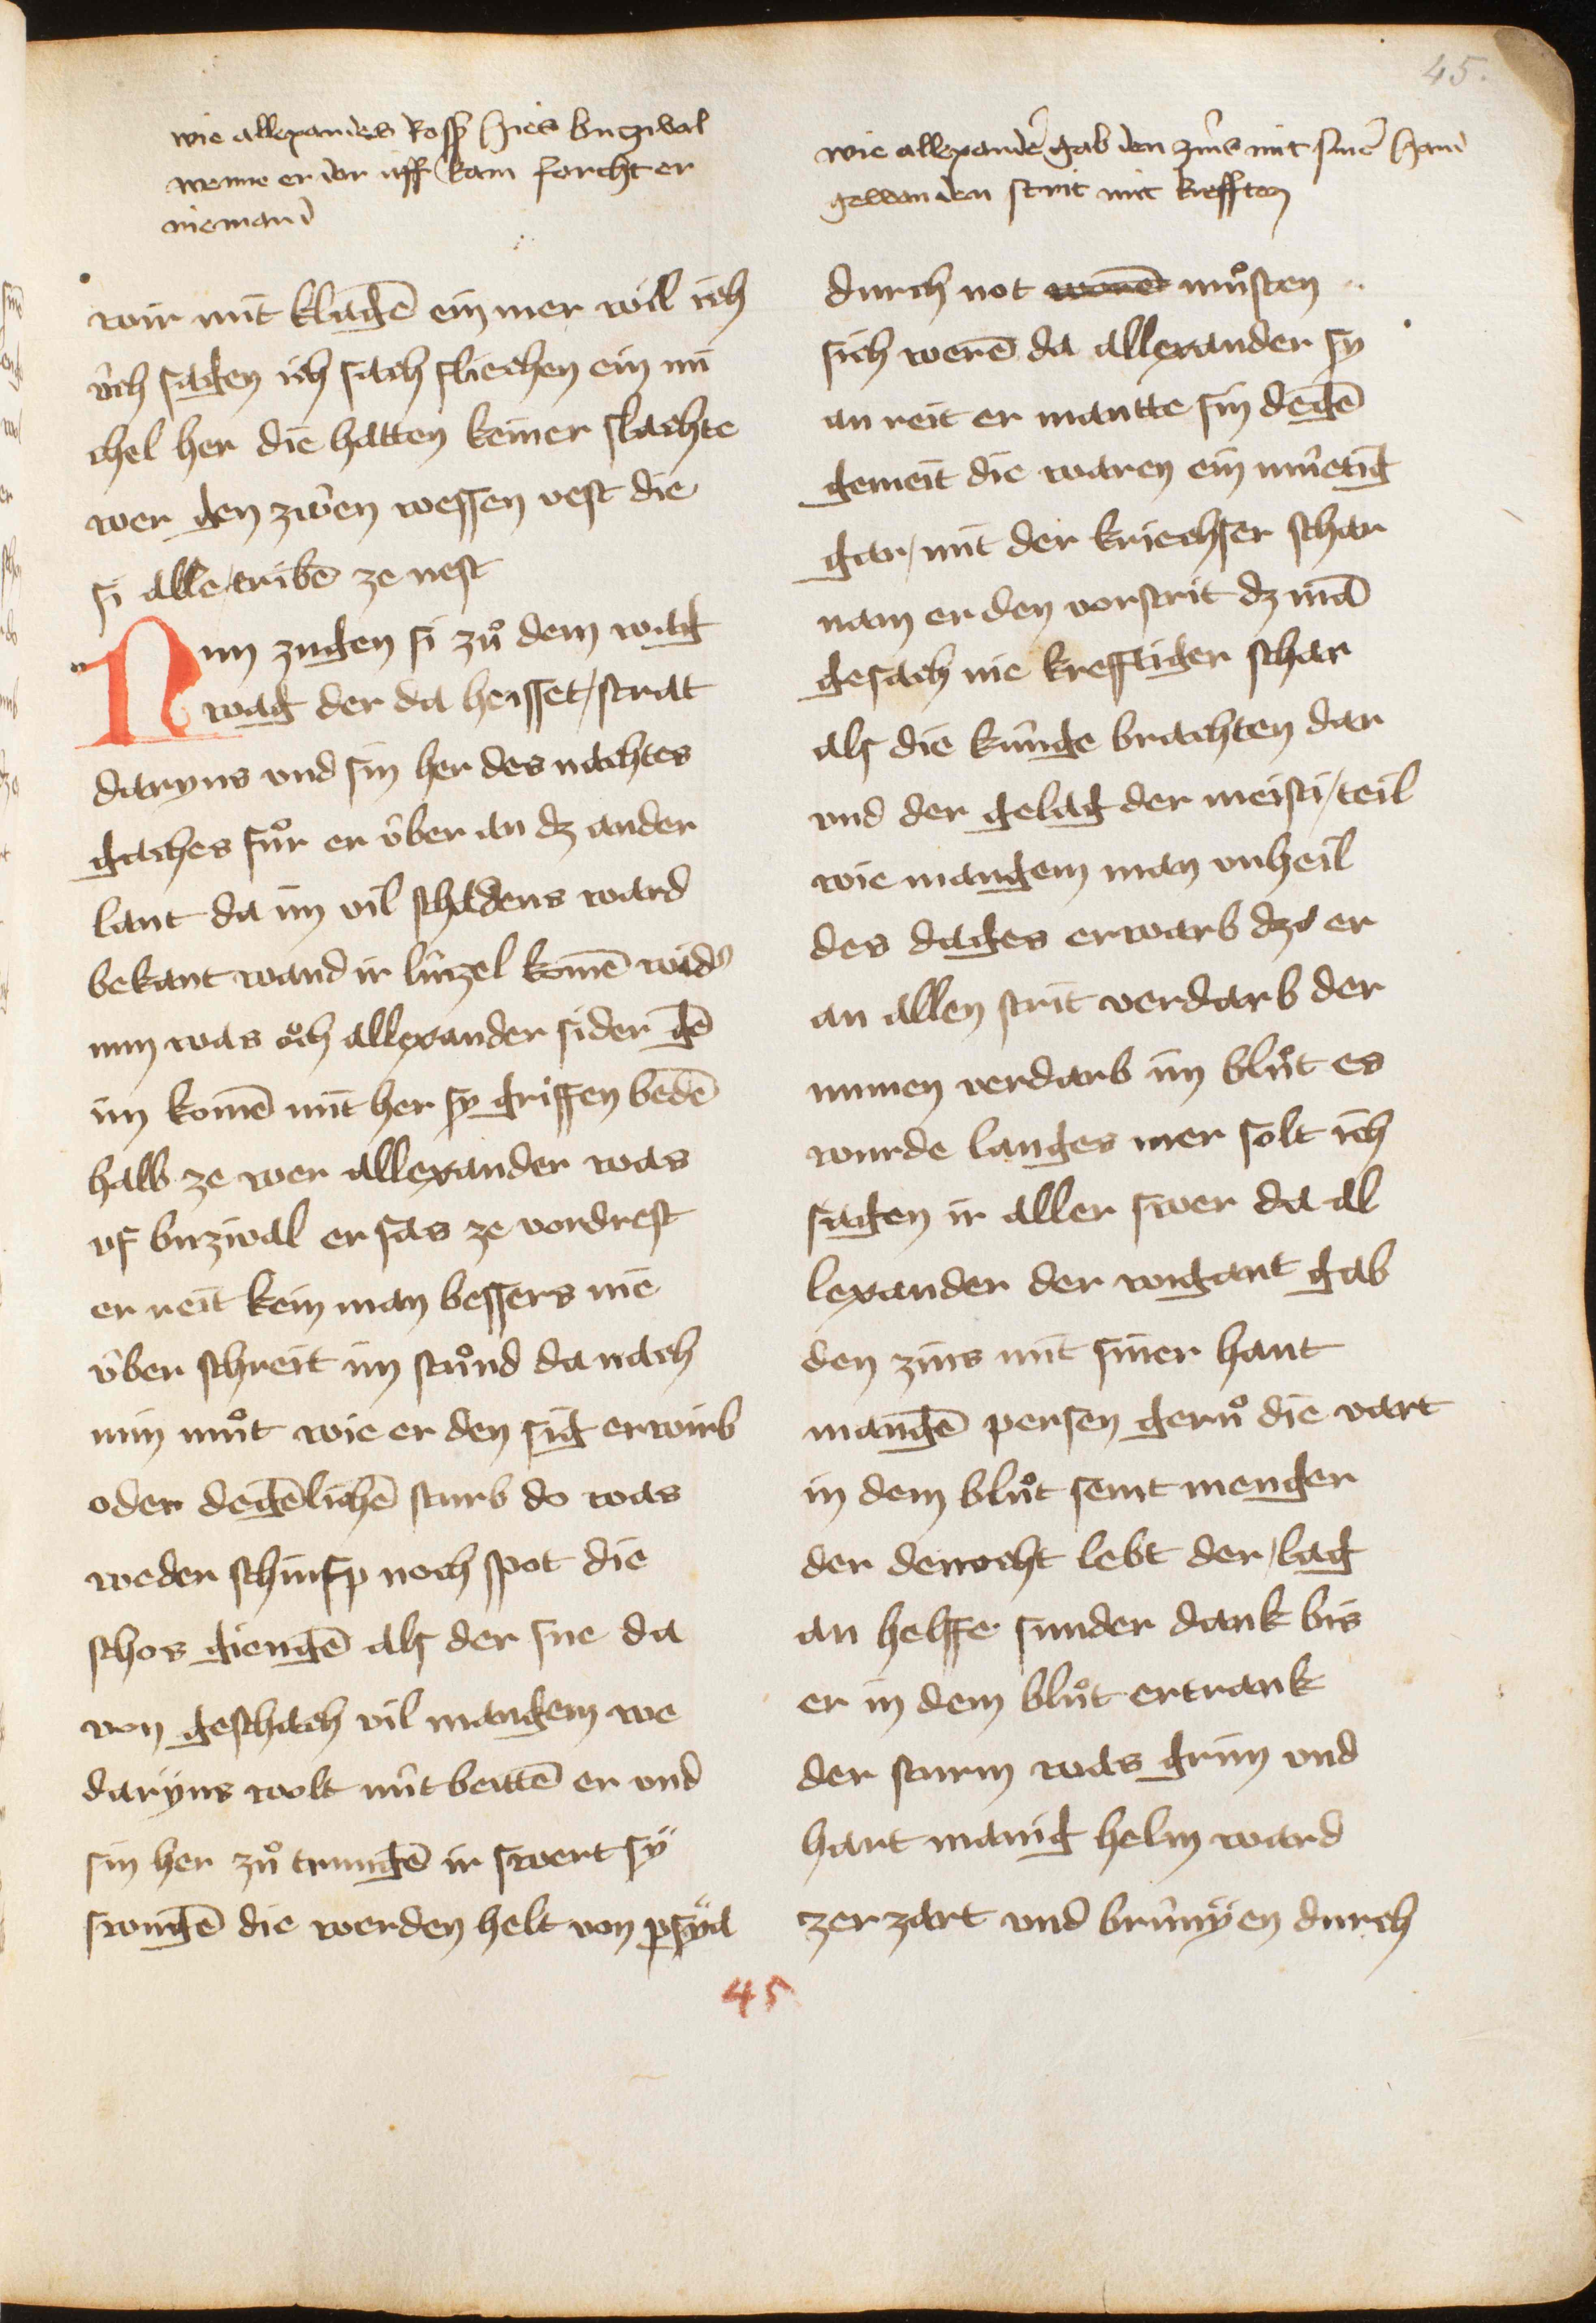 45.
wie allexanders Ross hies buzival
wenne er dor uff kam forcht er
niemand
wir mit klagē ein mer wil ich
v̂ch sagen ich sach fliechen ein mi
chel her die hatten keiner slachte
wer den zwên wessen vest die
si alle tribē ze nest
Nun zugen si zů dem wag
wag der da heisset strat
daryus vnd sin her des nachtes
gaches fůr er v̂ber an dz ander
lant da im vil schadens ward
bekant wand ir lûzel komē wid
nun was ǒch allexander sider gē
im komē mit her sy griffen bedē
halb ze wer allexander was
vf buzival er sas ze vordrest
er reit kein man bessers nie
v̂ber schreit im stůnd da nach
min můt wie er den sig erwirb
oder degēlichē sturb do was
weder schinfp noch spot die
schos giengē als der sne da
von geschach vil mangem we
daryus wolt nût beittē er vnd
sin her zů trungē ir swert sÿ
swngē die werden helt von psÿa
wie allexander gab den zins mit siner hand
gewan den strit mit krefften
durch not worēt můsten
sich werē da allexander sy
an reit er mantte sin degē
gemeit die waren ein mûetig
gar mit der kriechser schar
nam er den vorstrit dz mā
gesach nie krefftiger schar
als die kûnge brachten dar
vnd der gelag der meisti teil
wie mangem man vnheil
des dages erwarb dz er
an allen strit verdarb der
nimen verdarb im blůt es
wurde langes mer solt ich
sagen ir aller swer da al
lexander der wigant gab
den zins mit siner hant
mangē persen gerů die vart
in dem blůt semt menger
der dennocht lebt der lag
an helffe sunder dank bis
er in dem blůt ertrank
der sturm was grim vnd
hart manig helm ward
zerzart vnd brûnÿen durch
45